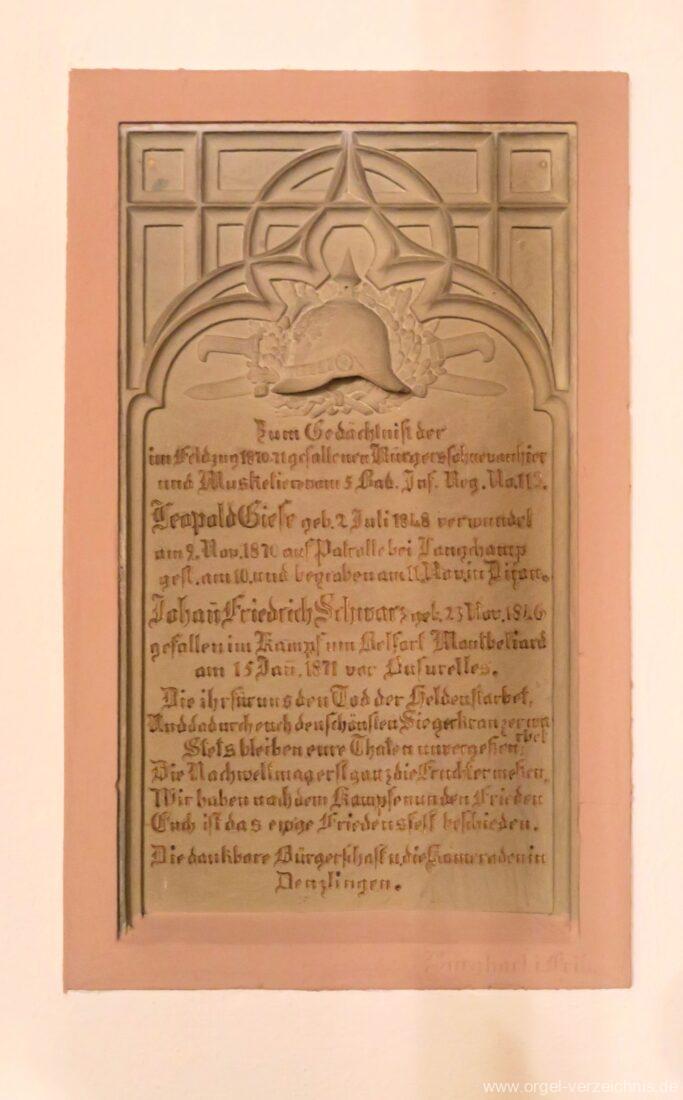 Zum Gedächtniß der
im Feldzug 1870-71 gefallenen Bürgerssöhne von hier
und Musketiere vom 5 Bad. Inf. Reg. No. 113.
Leopold Giese geb. 2 Juli 1848 verwundet
am 9. Nov. 1870 auf Patrolle bei Langchamp
gest. am 10. und begraben am 11. Nov. in Dijon.
Johañ Friedrich Schwarz geb. 23 Nov. 1846
gefallen im Kampf um Belfort Montbeliard
am 15 Jañ. 1871 vor Busurelles.
Die ihr für uns den Tod der Helden starbet,
Und dadurch euch den schönsten Siegerkranz erwa
rbet
Stets bleiben eure Thaten unvergessen;
Die Nachwelt mag erst ganz die Früchte messen,
Wir haben nach dem Kampfe nun den Frieden
Euch ist das ewge Friedensfest beschieden.
Die dankbare Bürgerschaft u. die Kameraden in
Denzlingen.
www.orgel-verzeichnis.de